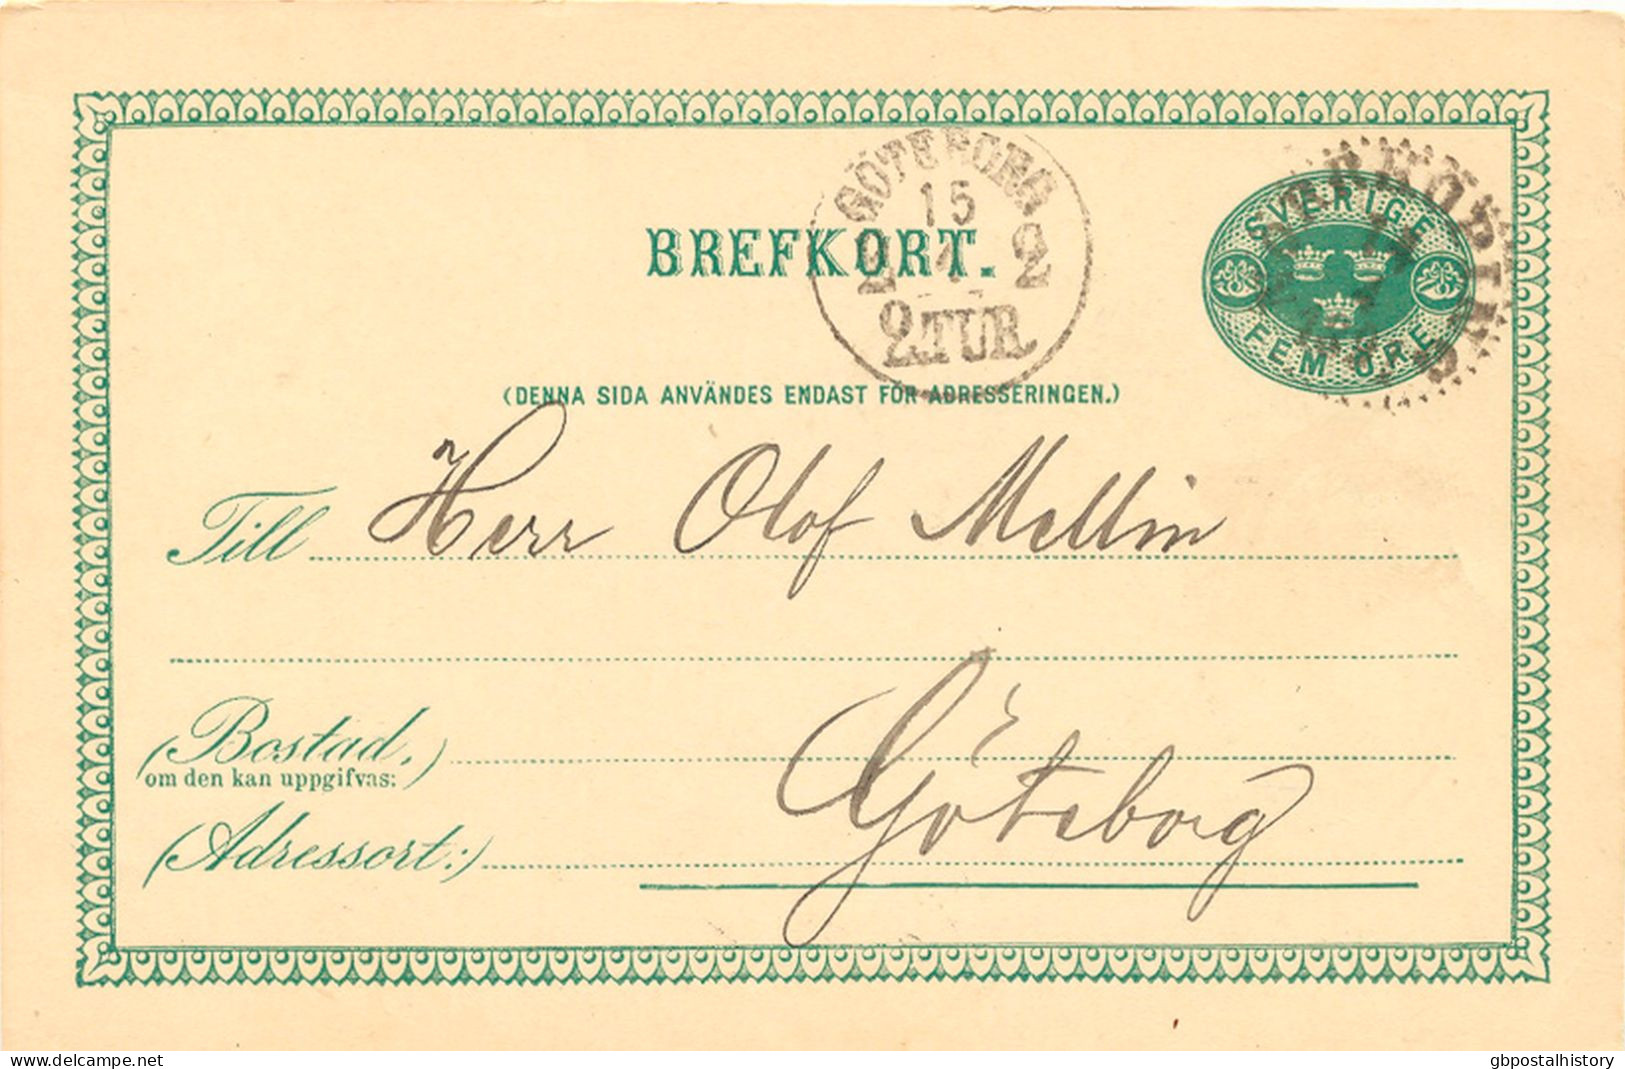 BREFKORT.
GÖTEBORG
15
2 TUR
SVERIGE
FEM ÖRE
NORRKÖPING
(DENNA SIDA ANVÄNDES ENDAST FÖR ADRESSERINGEN.)
Till Herr Olof Mellin
(Bostad,)
om den kan uppgifvas:
(Adressort:) Göteborg
delcampe.net
gbpostalhistory